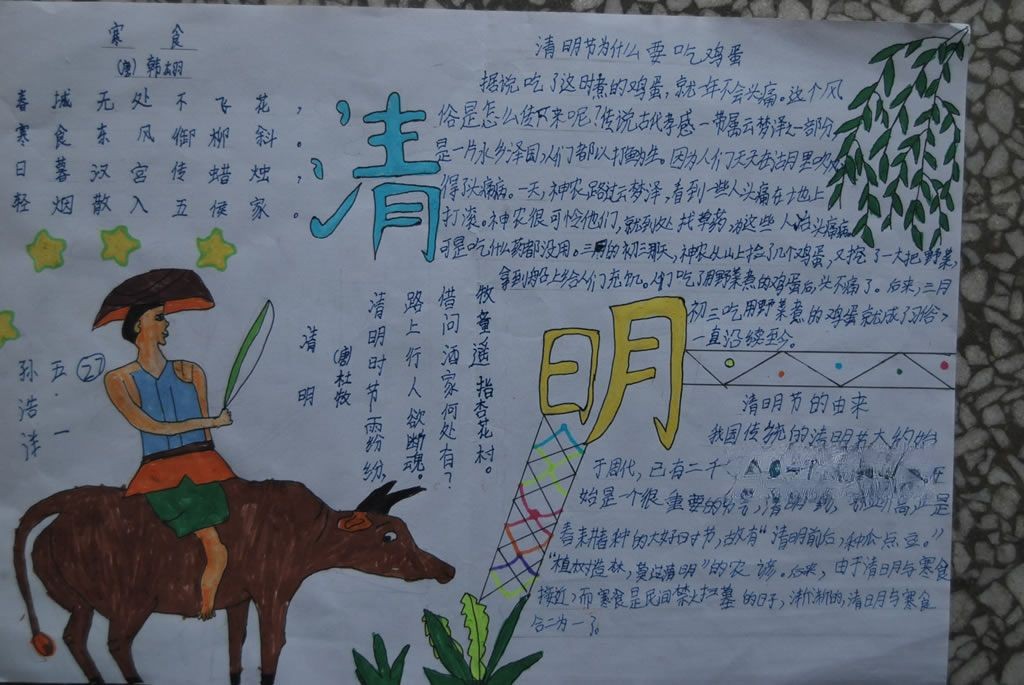 寒食
(唐) 韩翃
春城无处不飞花，
寒食东风御柳斜。
日暮汉宫传蜡烛，
轻烟散入五侯家。
清明
清明
(唐)杜牧
清明时节雨纷纷，
路上行人欲断魂。
借问酒家何处有？
牧童遥指杏花村。
五·一 27
孙浩洋
清明节为什么要吃鸡蛋
据说吃了这时煮的鸡蛋，就一年不会头痛。这个风
俗是怎么传下来呢？传说古代孝感一带属云梦泽之一部分
是一片水乡泽国，人们都以打鱼为生。因为人们天天在湖里
得了头痛病。一天，神农路过云梦泽，看到一些人头痛在地上
打滚。神农很可怜他们，就到处找草药为这些人治头痛病
可是吃什么药都没用。三月的初三那天，神农从山上捡了几个鸡蛋，又挖了一大把野菜，
拿到船上给人们充饥。人们吃了用野菜煮的鸡蛋后，头不痛了。后来，三月
初三吃用野菜煮的鸡蛋就成了习俗，
一直沿续至今。
清明节的由来
我国传统的清明节大约始
于周代，已有二千
始是个很重要的节气，清明一到，高正是
春耕春种的大好时节，故有“清明前后，种瓜点豆。”
“植树造林，莫过清明”的农谚。后来，由于清明与寒食
接近，而寒食是民间禁火扫墓的日子，渐渐的，清明与寒食
合二为一了。